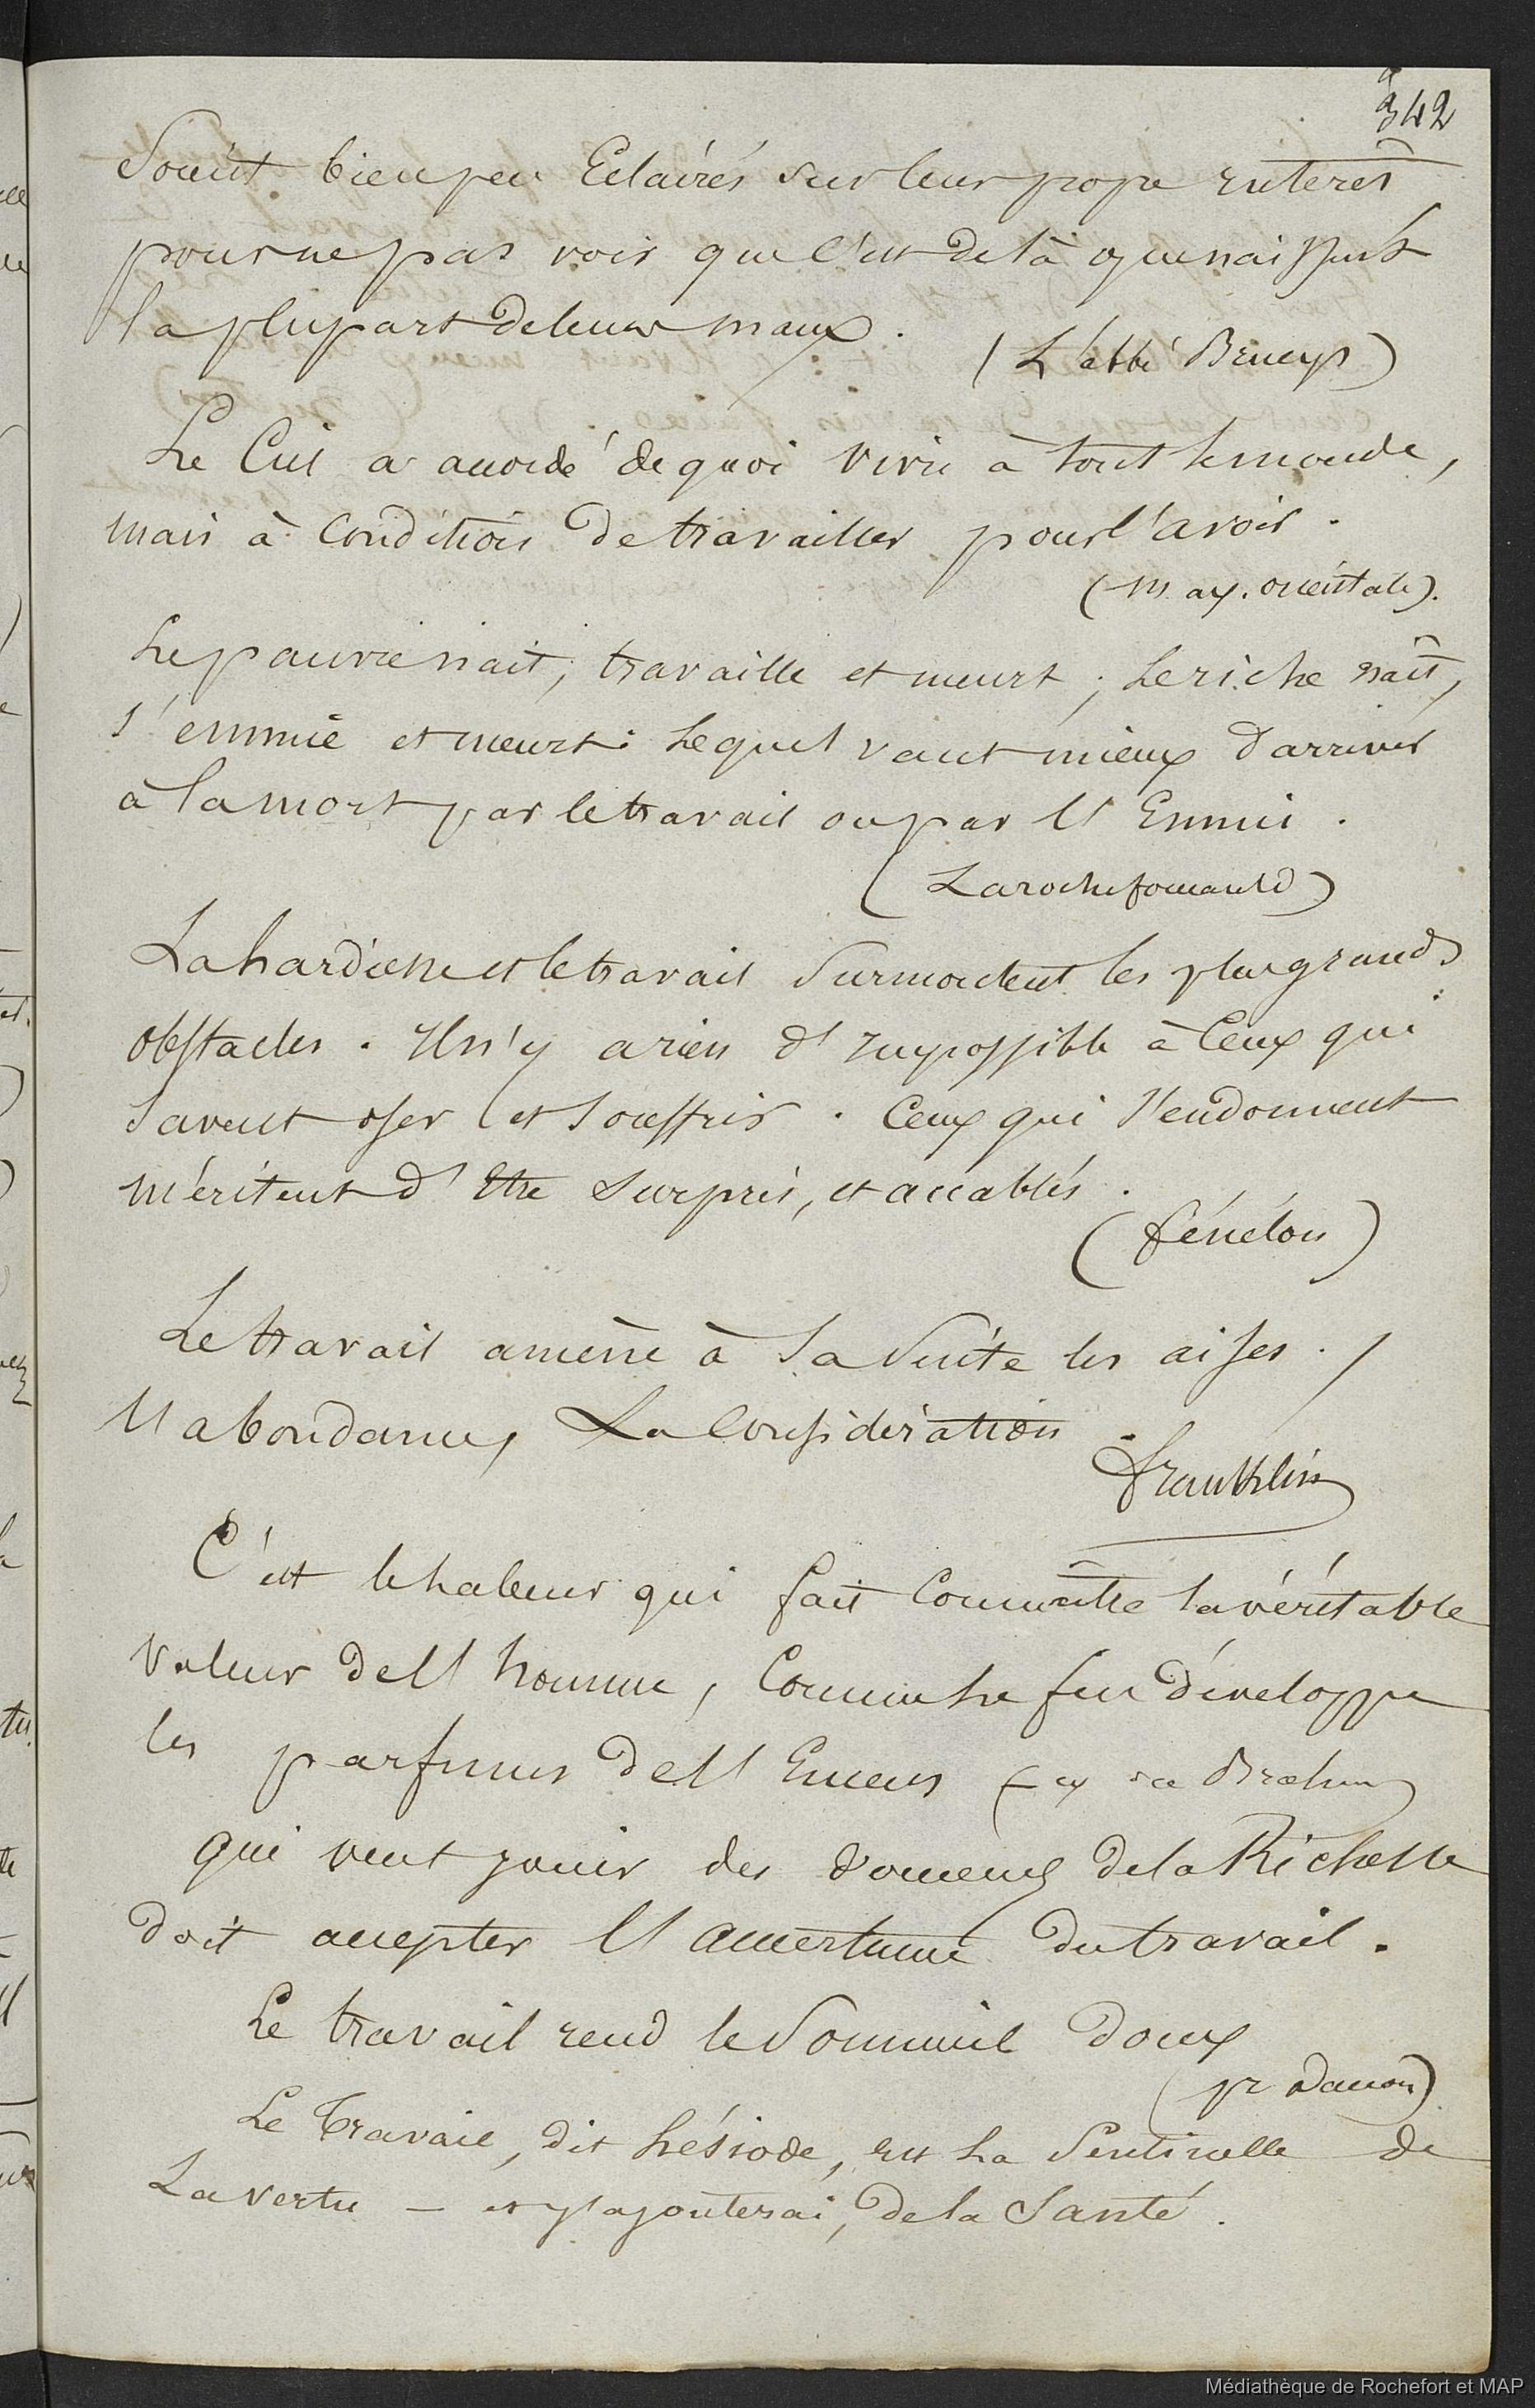 342
Sont bien peu Eclairés sur leur propre interêt
pour ne pas voir que c'est de là que naissent
la plupart de leurs maux.
(L'abbé Brueys)
Le Ciel a accordé de quoi vivre à tout le monde,
mais à condition de travailler pour l'avoir.
(Max. orientale).
Le pauvre nait, travaille et meurt; le riche naît,
s'ennuie et meurt: lequel vaut mieux d'arriver
à la mort par le travail ou par l'Ennui.
(Larochefoucauld)
La hardiesse et le travail surmontent les plus grands
obstacles. Il n'y a rien d'impossible à ceux qui
savent oser et souffrir. Ceux qui s'endorment
méritent d'être surpris, et accablés.
(fénélon)
Le travail amène à sa suite les aises.
l'abondance, La Considération
franklin
C'est le haleur qui fait connaître la véritable
valeur de l'homme, comme le feu développe
les parfums de l'Encens ( Brahm)
qui veut jouir des douceurs de la Richesse
doit accepter l'amertume du travail.
Le travail rend le Sommeil doux
( Danon)
Le Travail, dit hésiode, est la Sentinelle de
La vertu — et j'ajouterai, de la Santé.
Médiathèque de Rochefort et MAP